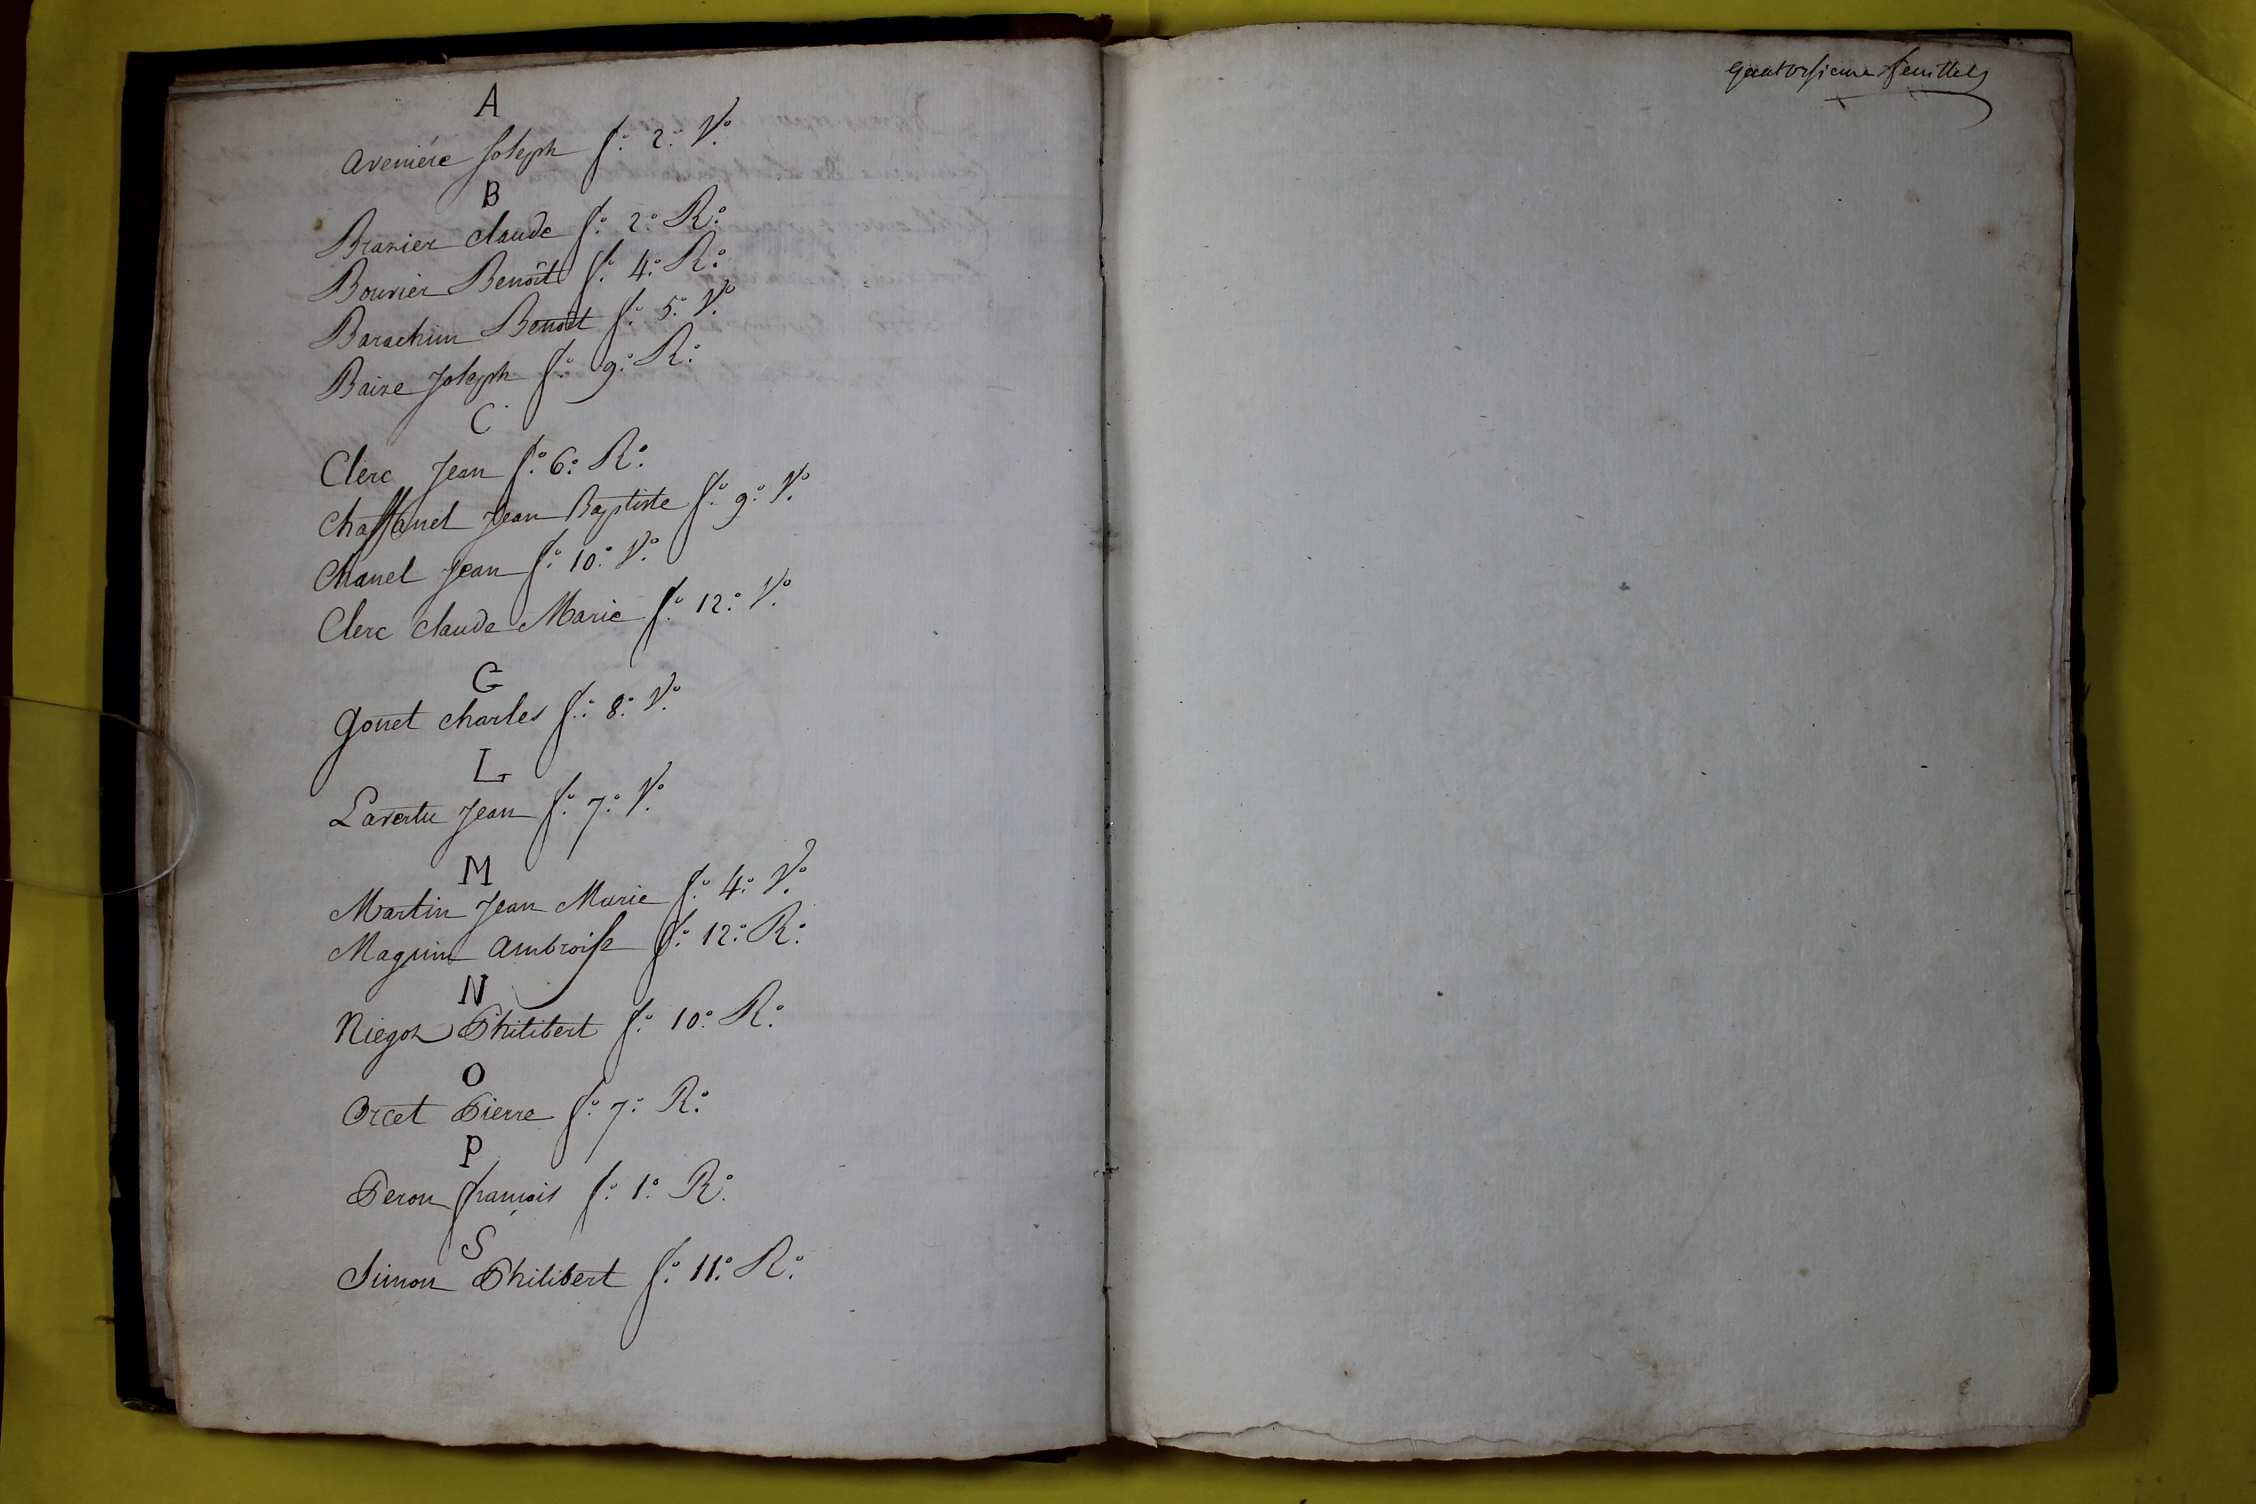 A
avenière Joseph f.º 2.º V.º
B
Brazier claude f.º 2.º R.º
Bouvier Benôit f.º 4.º R.º
Barachin Benoît f.º 5.º V.º
Baize Joseph f.º 9.º R.º
C
Clerc Jean f.º 6.º R.º
Chaffanel Jean Baptiste f.º 9.º V.º
Chanel Jean f.º 10.º V.º
Clerc claude Marie f.º 12.º V.º
G
Gonet charles f.º 8.º V.º
L
Lavertu Jean f.º 7.º V.º
M
Martin Jean Marie f.º 4.º V.º
Magnin ambroise f.º 12.º R.º
N
Niegoz Philibert f.º 10.º R.º
O
Orcet Pierre f.º 7.º R.º
P
Peron françois f.º 1.º R.º
S
Simon Philibert f.º 11.º R.º
quatorsieme feuillets